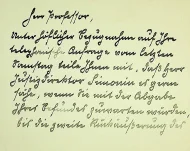 Herr Professor,
Unter höflicher Bezugnahme auf Ihre
telephonische Anfrage vom letzten
Samstag teile Ihnen mit, daß Herr
Justizdirektor Simonin es gerne
sähe, wenn Sie mit der Abgabe
Ihres Befundes zuwarten würden,
bis die zweite